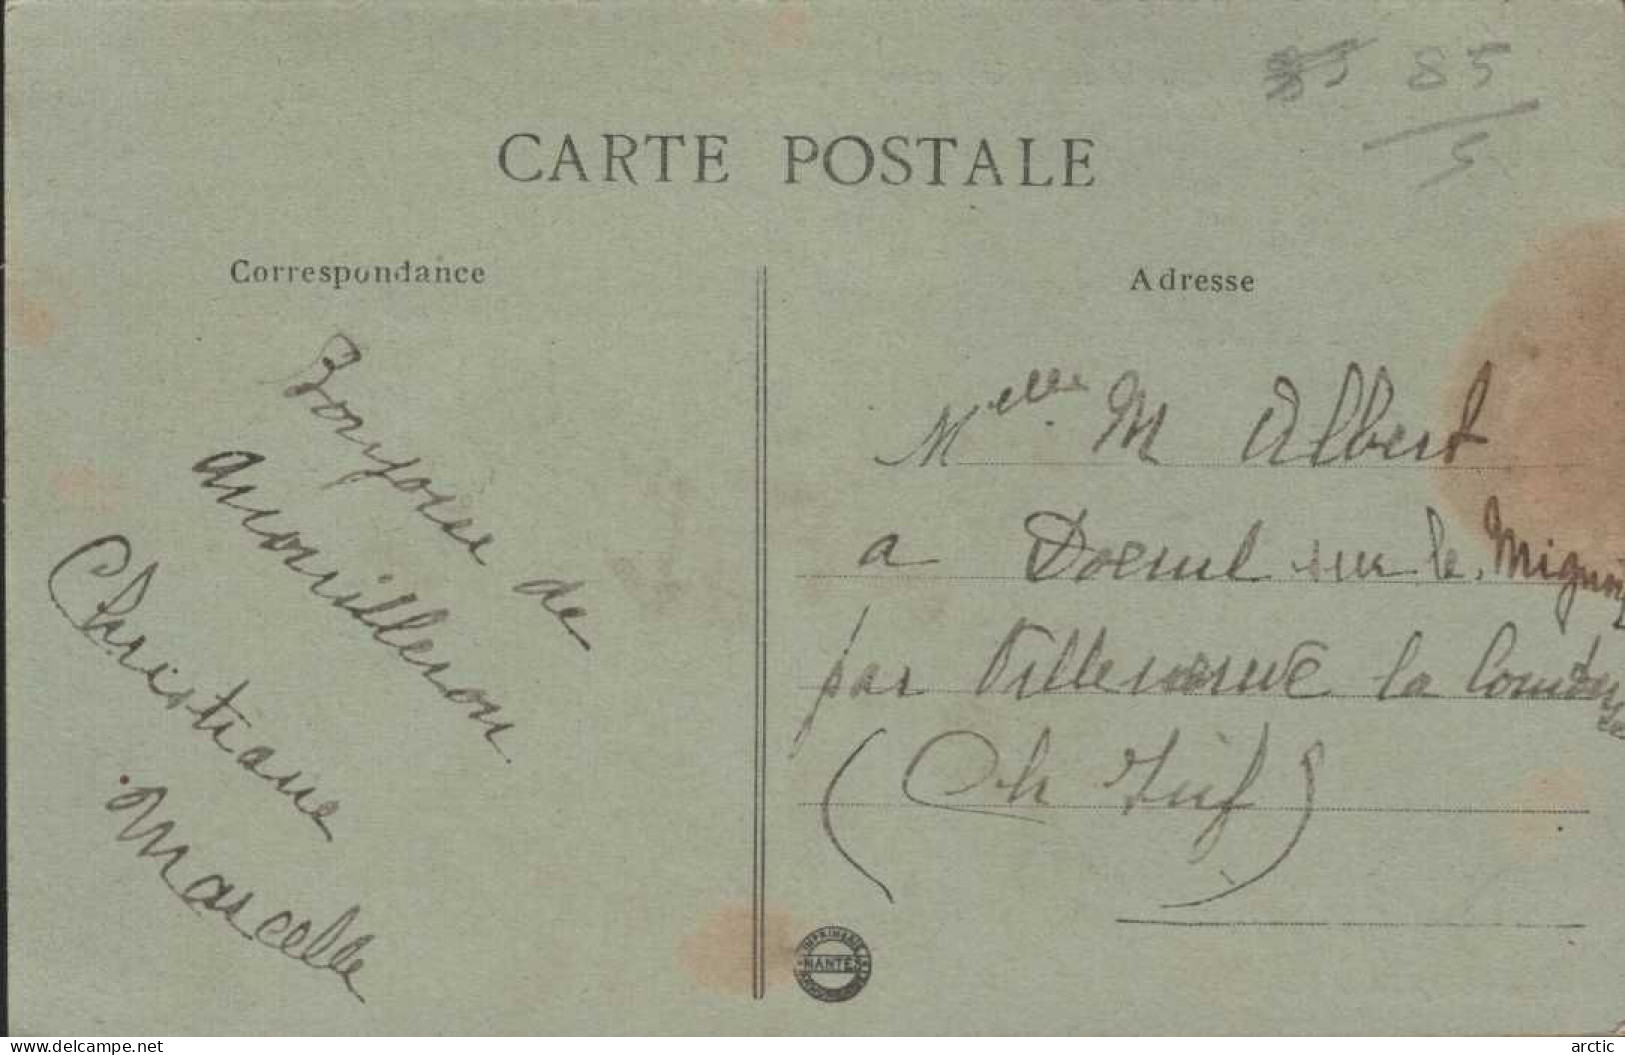 85
5
CARTE POSTALE
Correspondance
Bonjour de
Christiane
Marcelle
Adresse
Melle M Albert
a Doeuil sur le Mignon
par Villeneuve la Comtesse
(Ch Inf)
IMPRIMERIE
NANTES
delcampe.net
arctic